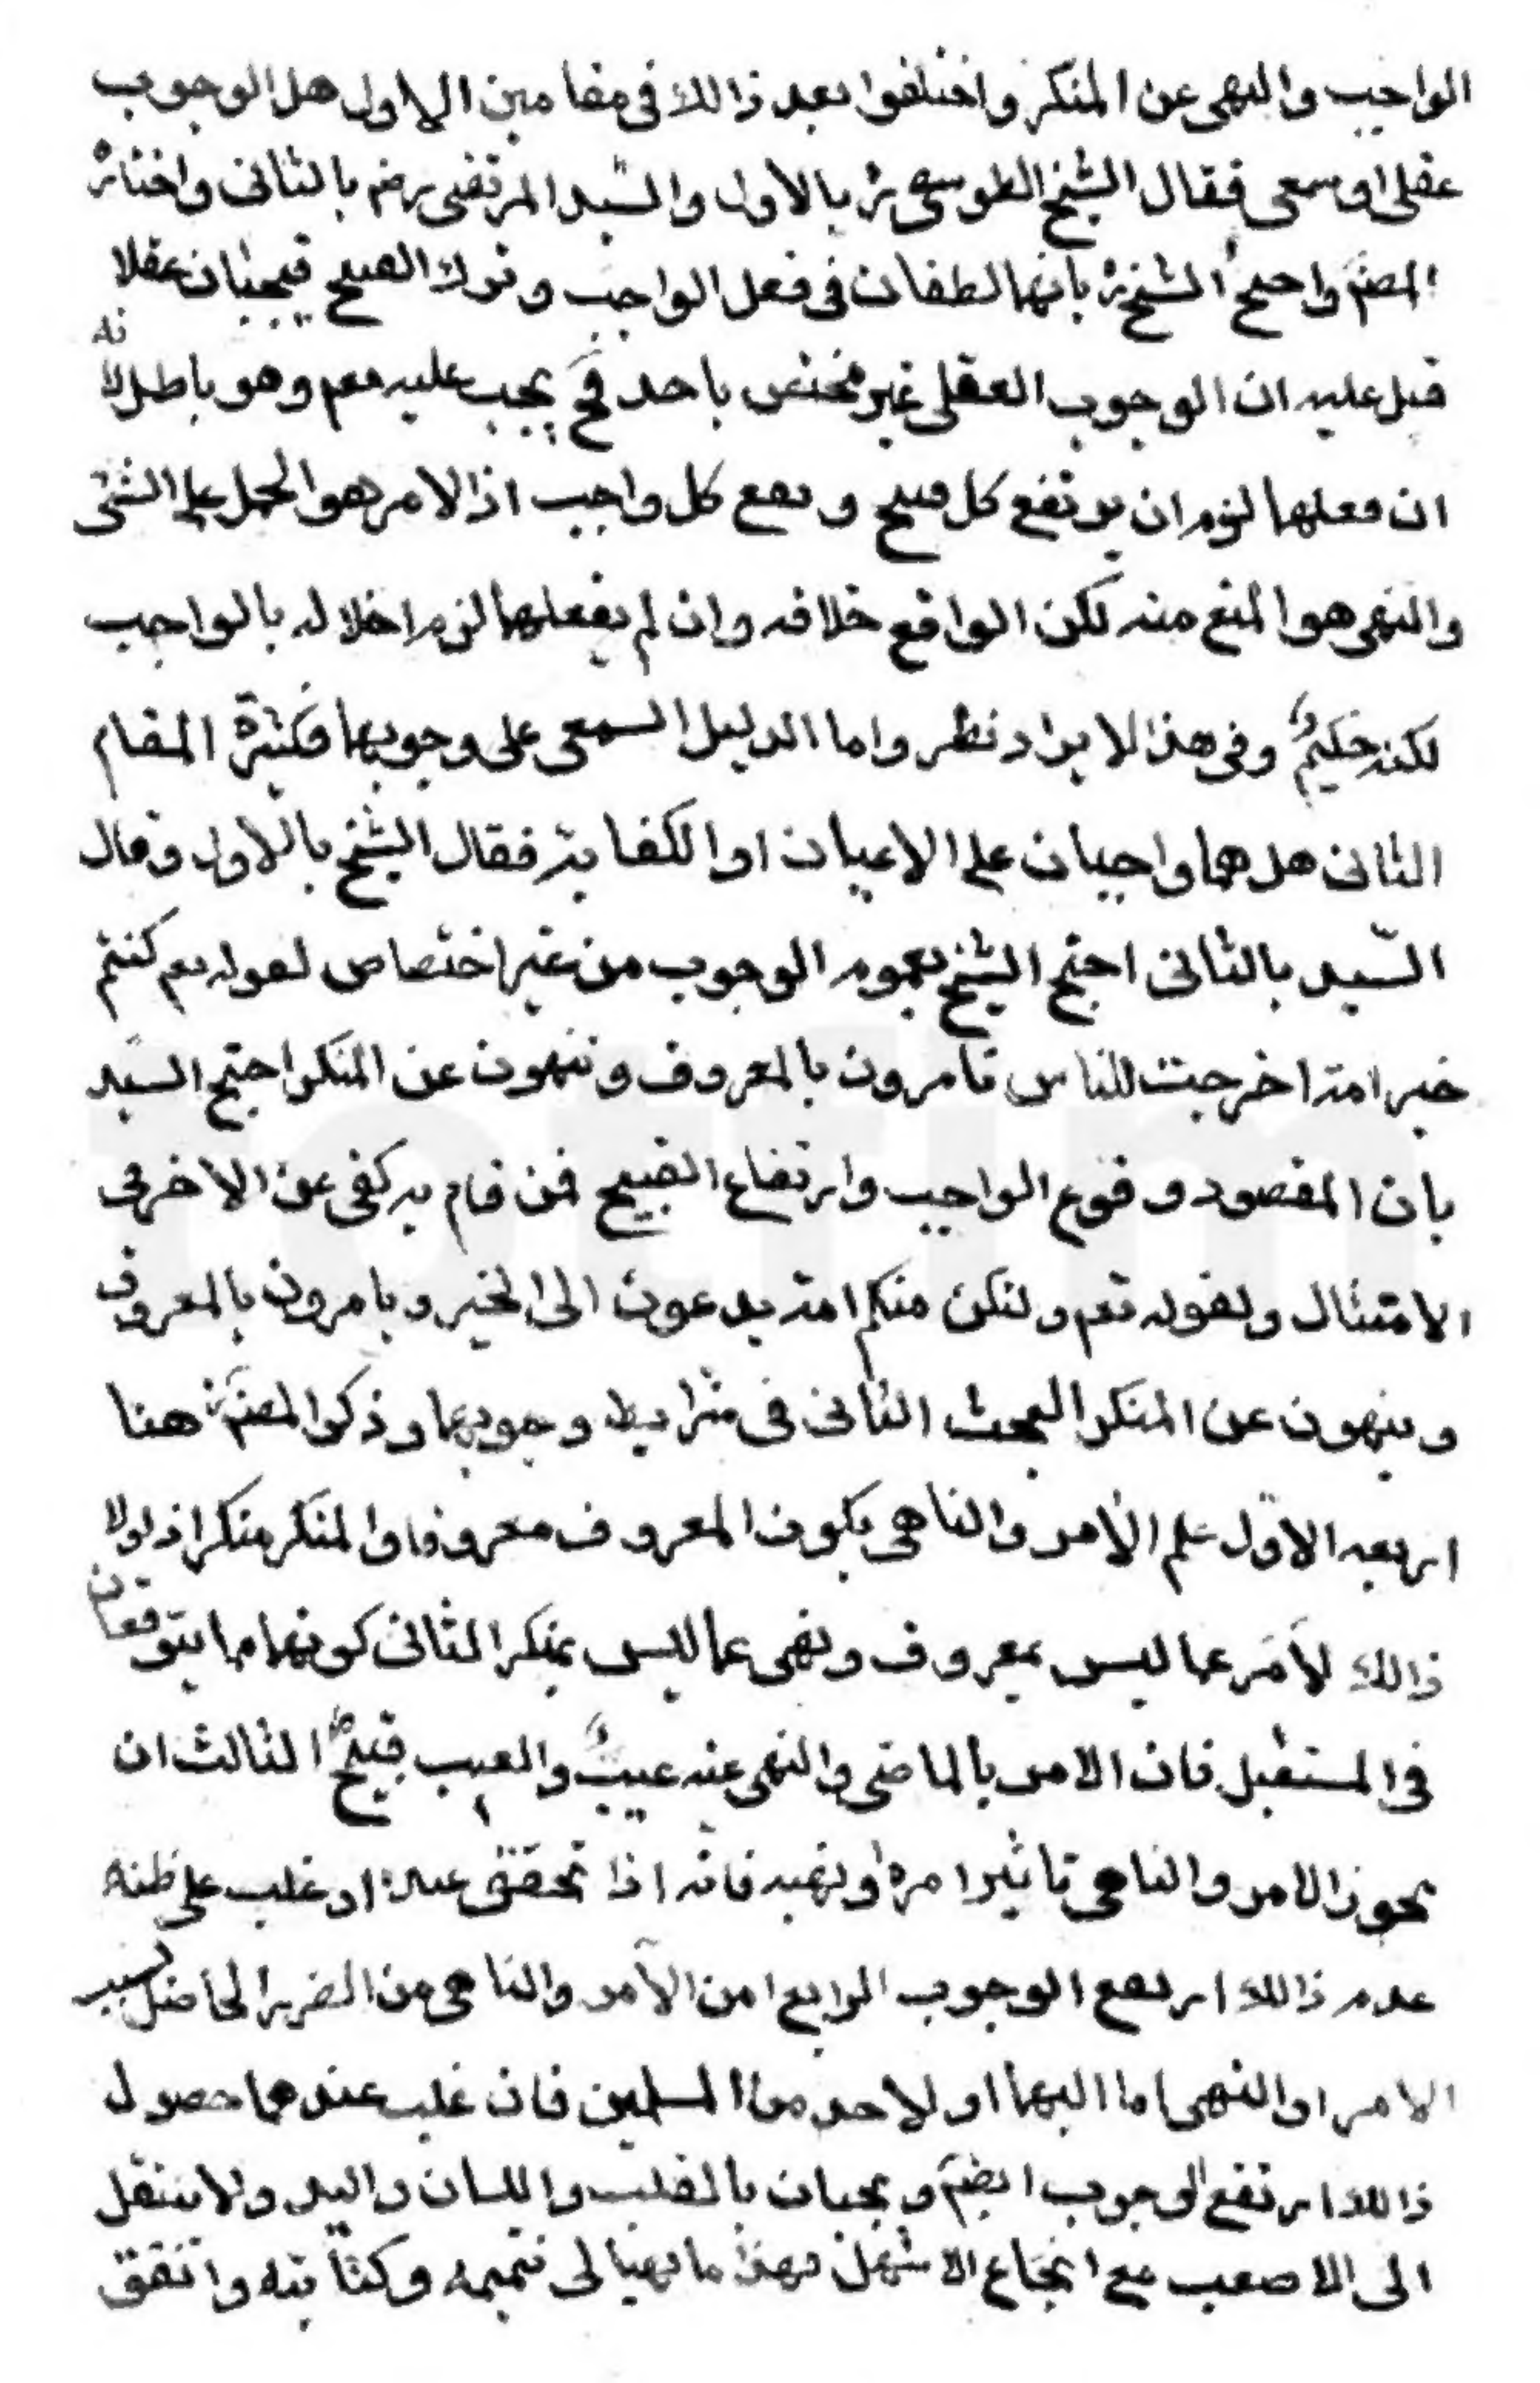 الواجب والنهى عن المنكر واختلفوا بعد ذالك فى مقامين الاول هل الوجوب
عقلى او سمعى فقال الشيخ الطوسى ره بالاول والسّيد المرتضى رضه بالثانى واختاره
المصنف واحتج الشيخ ره بانهما لطفان فى فعل الواجب وترك القبيح فيجبان عقلا
قيل عليه ان الوجوب العقلى غير مختص باحد فح يجب عليه تعم وهو باطل لانه
ان فعلهما لزم ان يرتفع كل قبيح ويقع كل واجب اذ الامر هو الحمل على الشئ
والنهى هو المنع منه لكن الواقع خلافه وان لم يفعلهما لزم اخلاله بالواجب
لكنه حكيمٌ وفى هذا الايراد نظر واما الدليل السمعى على وجوبهما فكثيرة المقام
الثانى هل هما واجبان على الاعيان او الكفاية فقال الشيخ بالاول وقال
السّيد بالثانى احتج الشيخ بعموم الوجوب من غير اختصاص لقوله تعم كنتم
خير امة اخرجت للناس تامرون بالمعروف وتنهون عن المنكر احتج السّيد
بان المقصود وقوع الواجب وارتفاع القبيح فمن قام به كفى عن الاخر فى
الامتثال ولقوله تعم ولتكن منكم امة يدعون الى الخير ويامرون بالمعروف
وينهون عن المنكر البحث الثانى فى شرايط وجوبهما وذكر المصنف ره هنا
اربعه الاوّل علم الامر والناهى بكون المعروف معروفا والمنكر منكرا اذ لولا
ذالك لأمَر بما ليس بمعروف ونهى عما ليس بمنكر الثانى كونهما مما يتوقعان
فى المستقبل فان الامر بالماضى والنهى عنه عبثٌ والعبث قبيحٌ الثالث ان
يجوز الامر والناهى تاثير امره او نهيه فانه اذا تحقق عنده او غلب على ظنه
عدم ذالك ارتفع الوجوب الرابع امن الآمر والناهى من الضرر الحاصل بسبب
الامر او النهى اما اليهما او لاحد من المسلمين فان غلب عندهما حصول
ذالك ارتفع الوجوب ايضم ويجبان بالقلب واللسان واليد ولا ينتقل
الى الاصعب مع انجاع الاسهل فهذا ما تهيا لى تتميمه وكتابته واتفق